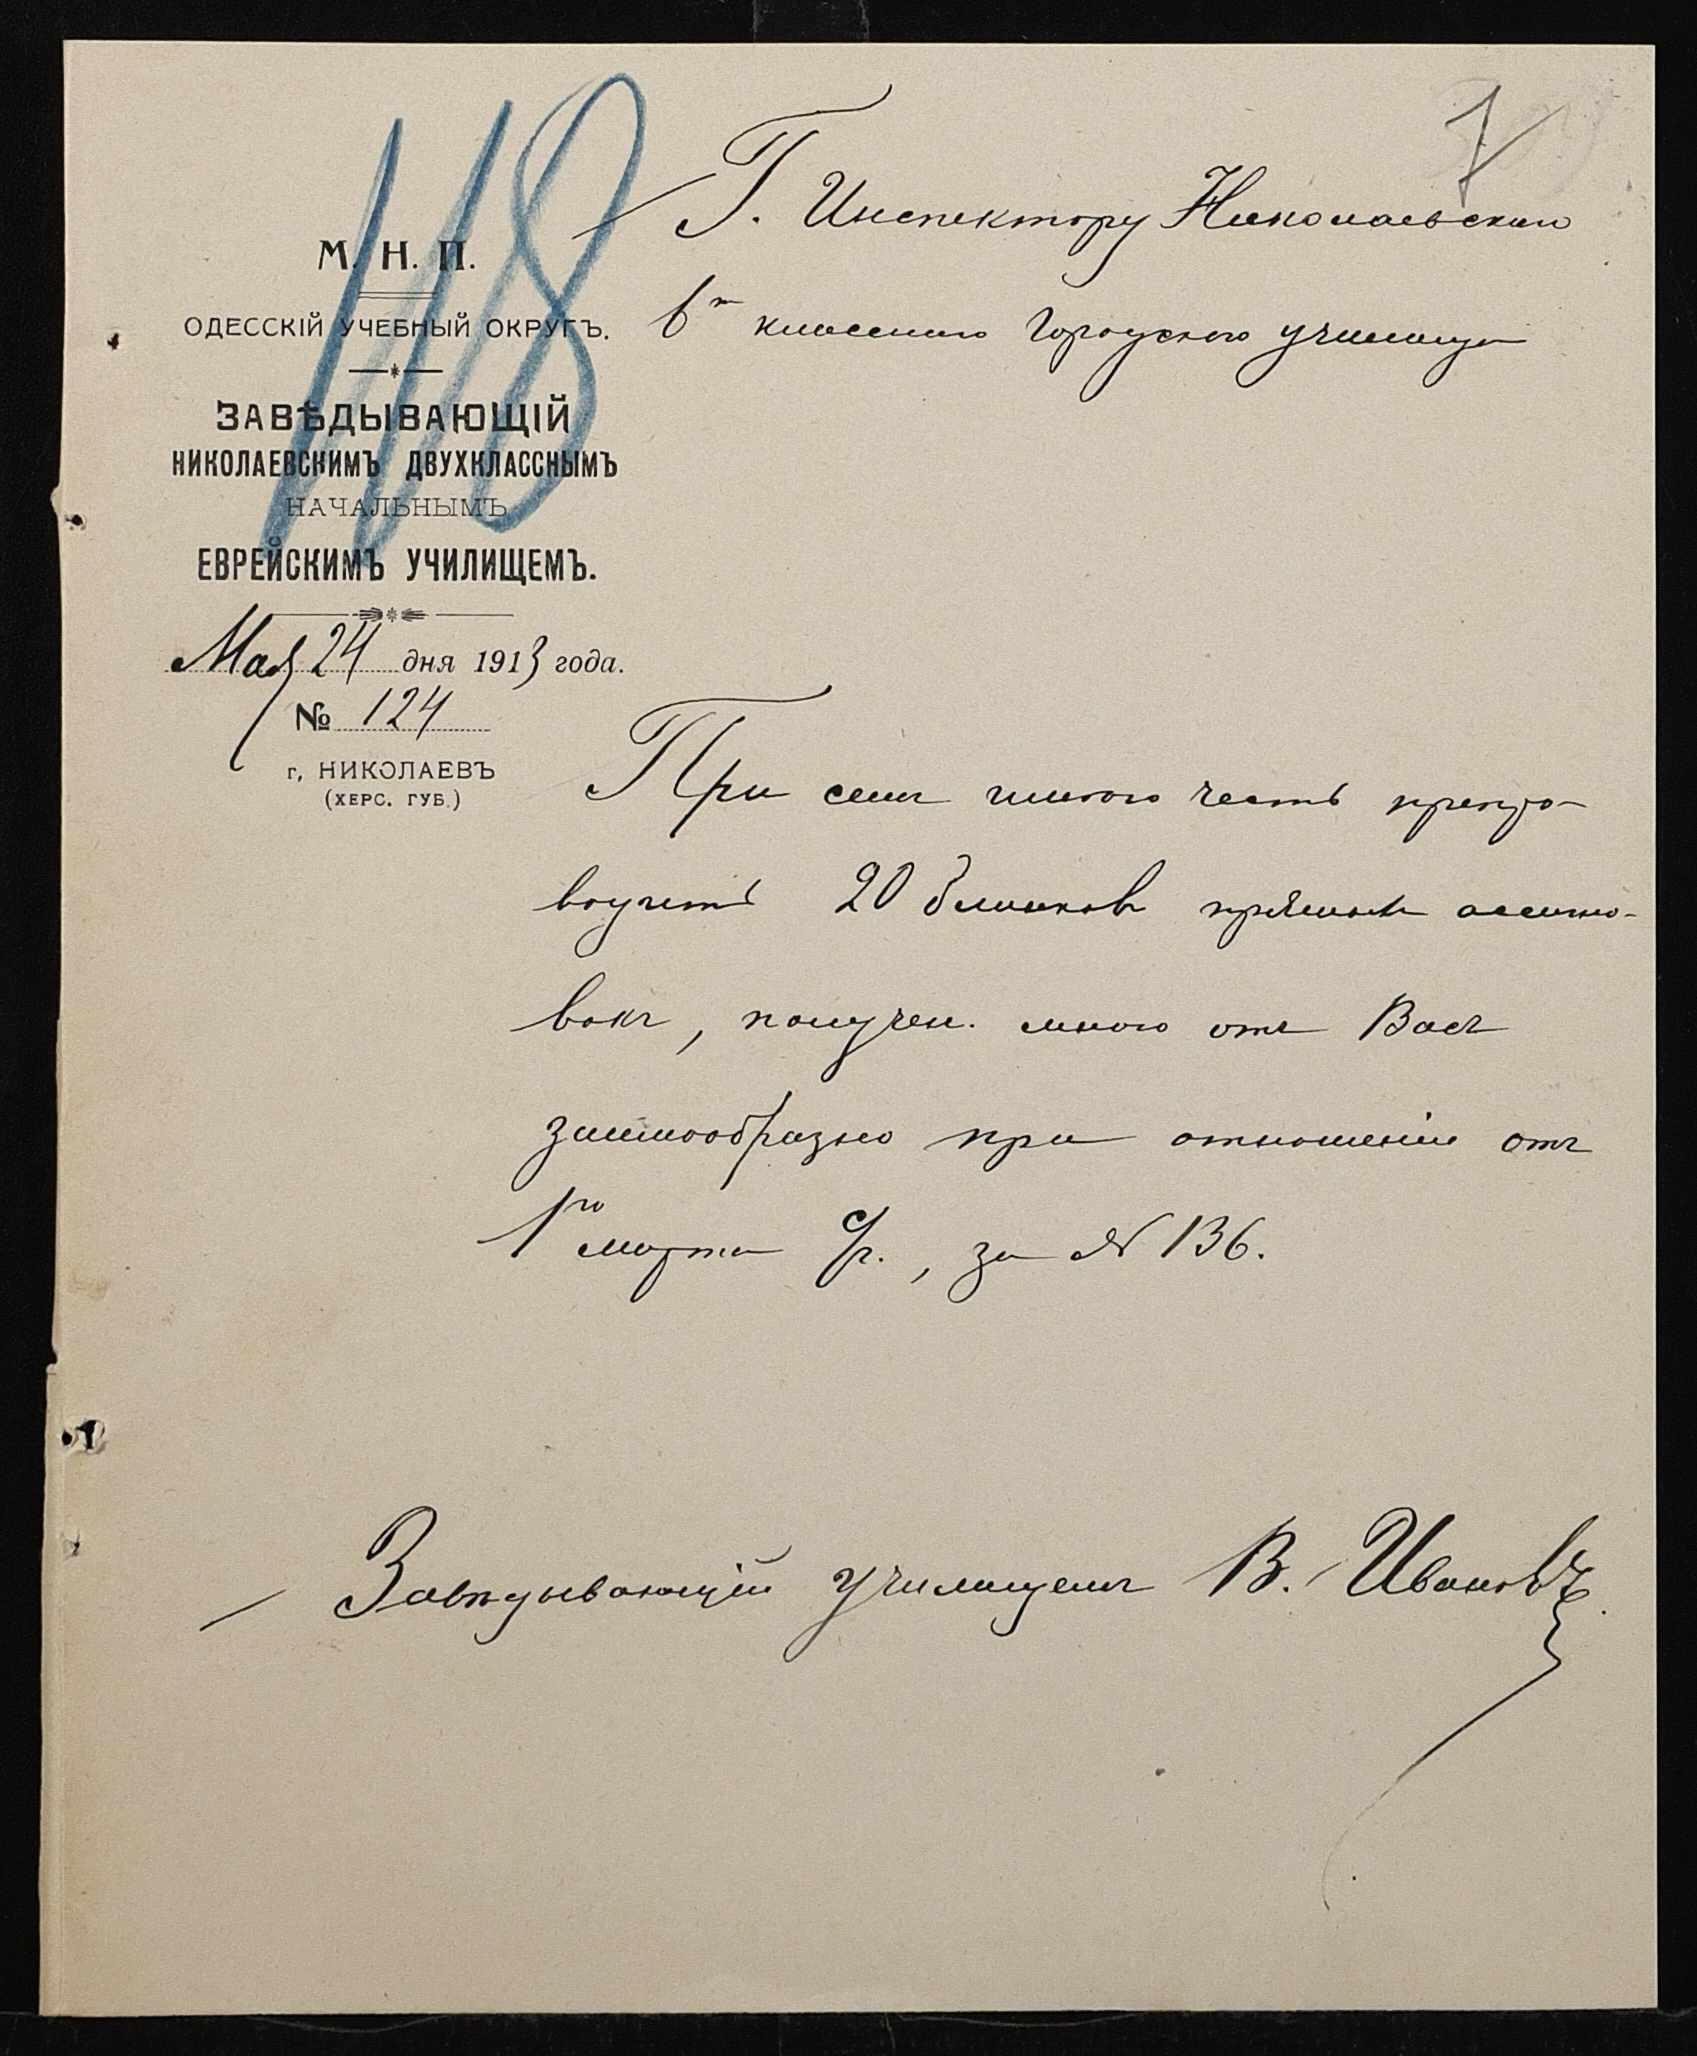 118
7
М. Н. П.
ОДЕССКІЙ УЧЕБНЫЙ ОКРУГЪ.
ЗАВѢДЫВАЮЩІЙ
НИКОЛАЕВСКИМЪ ДВУХКЛАССНЫМЪ
НАЧАЛЬНЫМЪ
ЕВРЕЙСКИМЪ УЧИЛИЩЕМЪ.
Мая 24 дня 1913 года.
№ 124
г. НИКОЛАЕВЪ
(ХЕРС. ГУБ.)
Г. Инспектору Николаевскаго
6ти класснаго Городского училища
При семъ имѣю честь препро-
водить 20 бланковъ прямыхъ ассигно-
вокъ, получен. мною отъ Васъ
заимообразно при отношеніи отъ
1го марта с/г., за № 136.
Завѣдывающій училищемъ В. Ивановъ